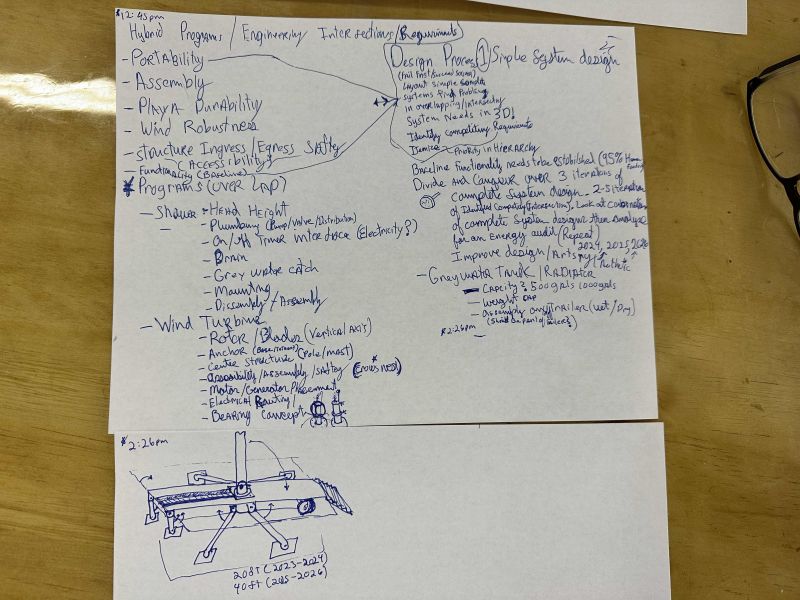 *12:45pm
Hybrid Programs / Engineering Intersections / Requirements
- Portability
- Assembly
- Playa Durability
- Wind Robustness
- Structure Ingress / Egress Safety
- Functionality (Baseline) (Accessibility)
* Programs (Over Lap)
- Shower - Head Height
- Plumbing (Pump/Valve/Distribution)
- On/Off Timer Interface (Electricity?)
- Drain
- Grey water catch
- Mounting
- Disassembly / Assembly
- Wind Turbine
- Rotor / Blades (Vertical Axis)
- Anchor
- Center Structure (Pole/mast)
- Accessibility / Assembly / Safety (Crows nest)
- Motor / Generator Placement
- Electrical Routing /
- Bearing Concept
Design Process 1 Simple System design
Layout Simple
Systems find Problems
in overlapping / Intersecting
System Needs in 3D!
Identify competing Requirements
Itemize Priority in Hierarchy
Baseline Functionality needs to be established (95%
Divide and Conquer over 3 iterations of
complete System design. 2-5 iteration
of Identified Competing Intersections. Look at
of complete System designs then
for an Energy audit (Repeat)
2024, 2025, 2026
Improve design / Artistry
- Grey Water Tank / Radiator
- Capacity? 500gals 1000gals
- Weight Cap
- Assembly on/ Trailer (Wet/Dry)
*2:26pm
*2:26pm
20ft (2023-2024)
40ft (2025-2026)